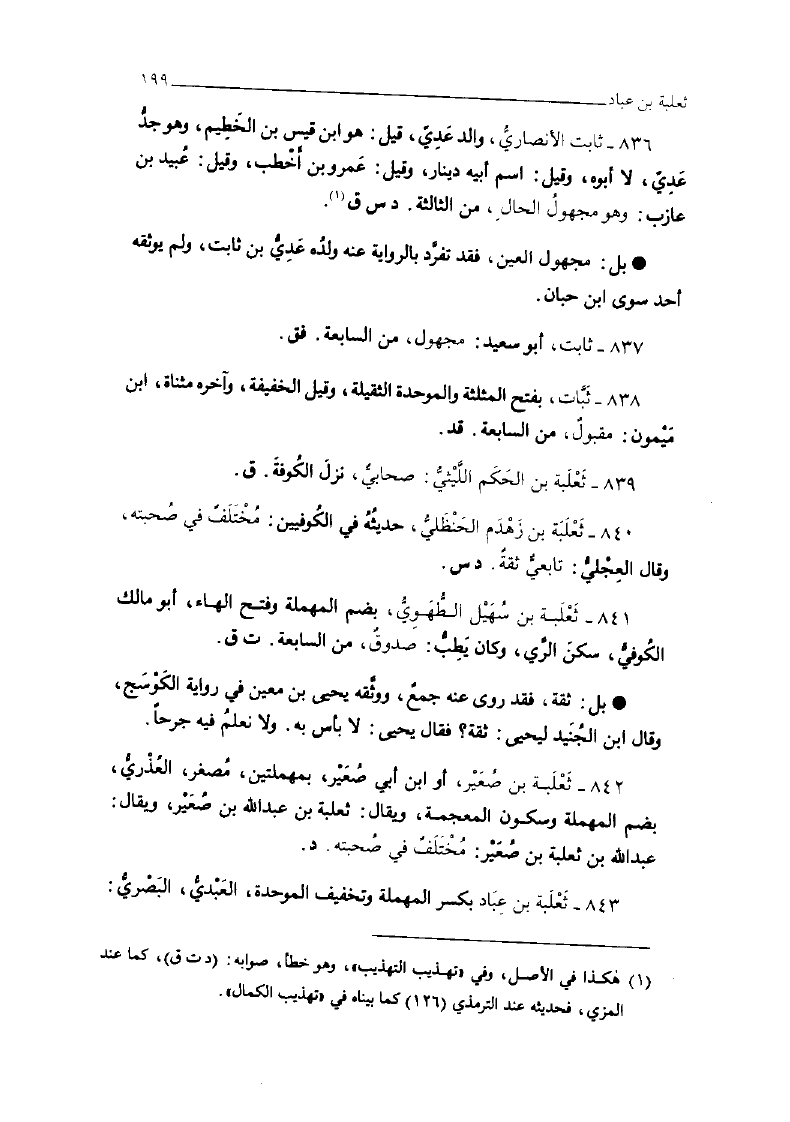 ثعلبة بن عباد ١٩٩
٨٣٦ ـ ثابت الأنصاريُّ، والد عَدِيّ، قيل: هو ابن قيس بن الخَطِيم، وهو جدُّ
عَدِيّ، لا أبوه، وقيل: اسم أبيه دينار، وقيل: عَمرو بن أَخْطب، وقيل: عُبيد بن
عازب: وهو مجهولُ الحال، من الثالثة. د س ق(١).
● بل: مجهول العين، فقد تفرَّد بالرواية عنه ولدُه عَدِيُّ بن ثابت، ولم يوثقه
أحد سوى ابن حبان.
٨٣٧ ـ ثابت، أبو سعيد: مجهول، من السابعة. فق.
٨٣٨ ـ ثَبَّات، بفتح المثلثة والموحدة الثقيلة، وقيل الخفيفة، وآخره مثناة، ابن
مَيْمون: مقبولٌ، من السابعة. قد.
٨٣٩ ـ ثَعْلَبة بن الحَكَم اللَّيْثيُّ: صحابيٌّ، نزلَ الكُوفةَ. ق.
٨٤٠ ـ ثَعْلَبَة بن زَهْدَم الحَنْظَليُّ، حديثُهُ في الكُوفيين: مُخْتَلَفٌ في صُحبته،
وقال العِجْليُّ: تابعيٌّ ثقةٌ. د س.
٨٤١ ـ ثَعْلَبـة بن سُهَيْل الـطُّهَـوِيُّ، بضم المهملة وفتـح الهـاء، أبو مالك
الكُوفيُّ، سكنَ الرَّي، وكان يَطِبُّ: صدوقٌ، من السابعة. ت ق.
● بل: ثقة، فقد روى عنه جمعٌ، ووثَّقه يحيى بن معين في رواية الكَوْسَج،
وقال ابن الجُنَيد ليحيى: ثقة؟ فقال يحيى: لا بأس به. ولا نعلمُ فيه جرحاً.
٨٤٢ ـ ثَعْلَبـة بن صُعَيْر، أو ابن أبي صُعَيْر، بمهملتين، مُصغر، العُذْريُّ،
بضم المهملة وسكـون المعجمـة، ويقال: ثعلبة بن عبدالله بن صُعَيْر، ويقال:
عبدالله بن ثعلبة بن صُعَيْر: مُخْتَلَفٌ في صُحبته. د.
٨٤٣ ـ ثَعْلَبة بن عِبَاد بكسر المهملة وتخفيف الموحدة، العَبْديُّ، البَصْريُّ:
(١) هٰكـذا في الأصـل، وفي «تهـذيب التهذيب»، وهو خطأ، صوابه: (د ت ق)، كما عند
المزي، فحديثه عند الترمذي (١٢٦) كما بيناه في «تهذيب الكمال».